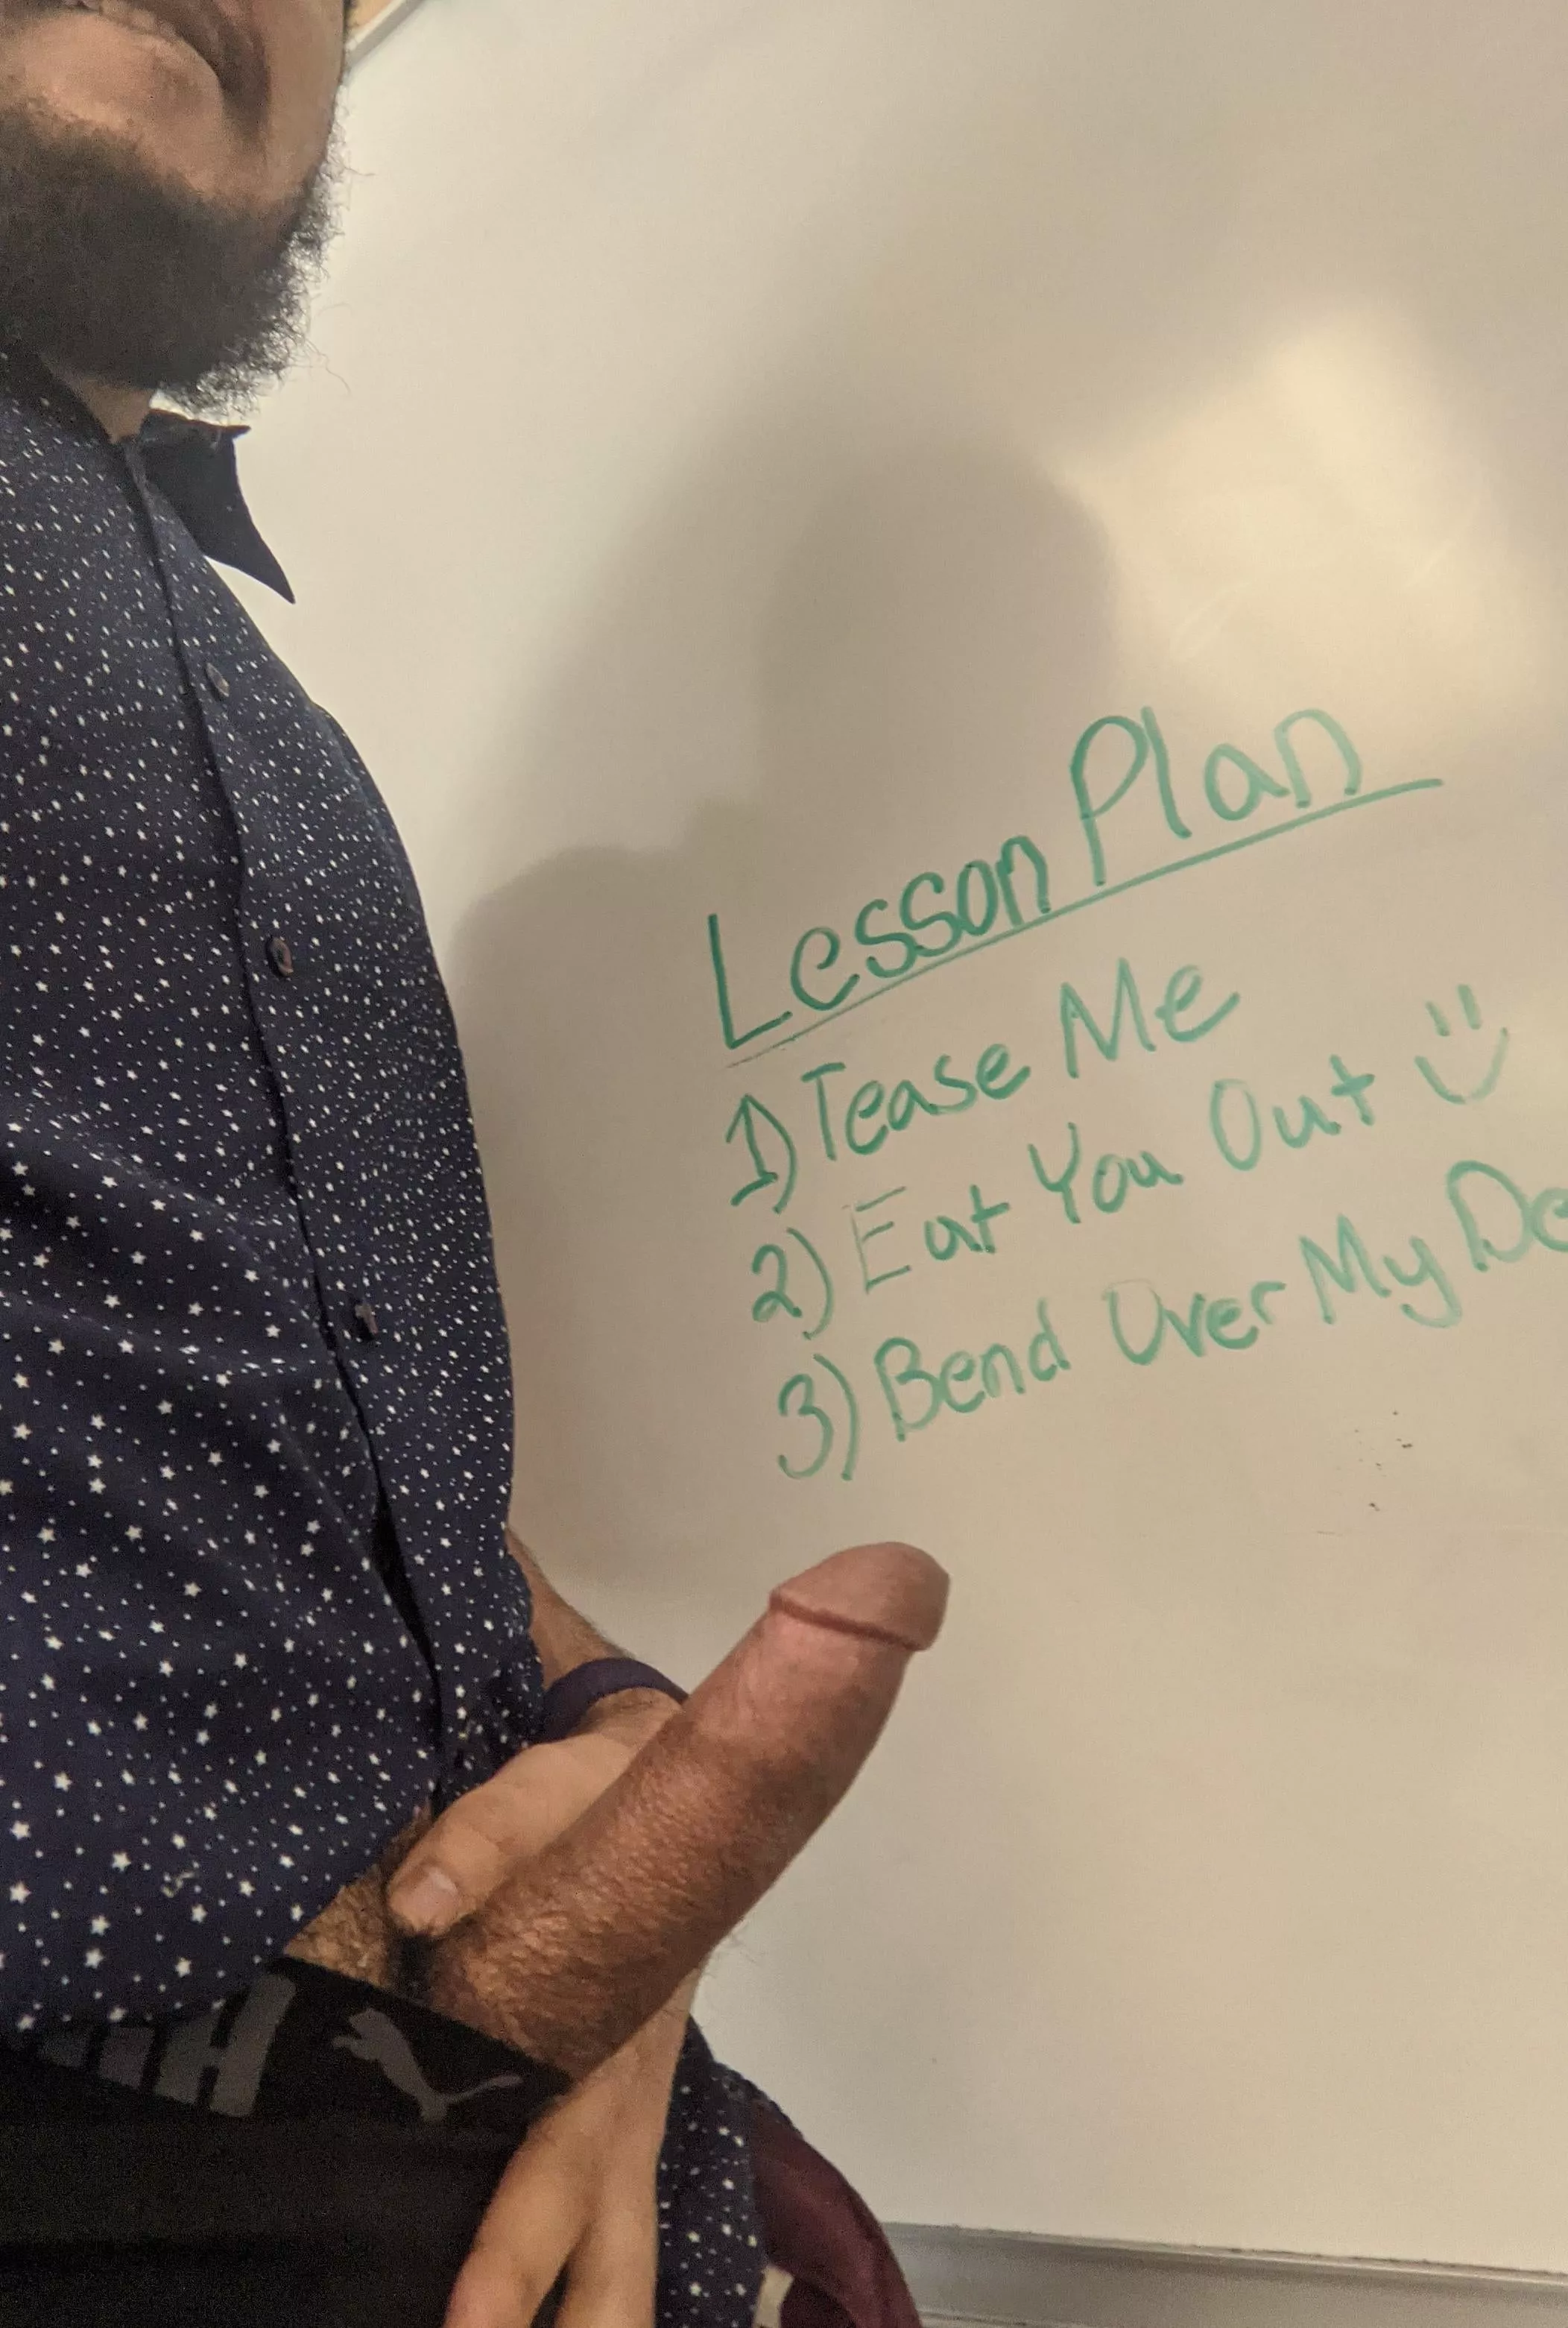 Lesson Plan
1) Tease Me
2) Eat You Out
3) Bend Over My